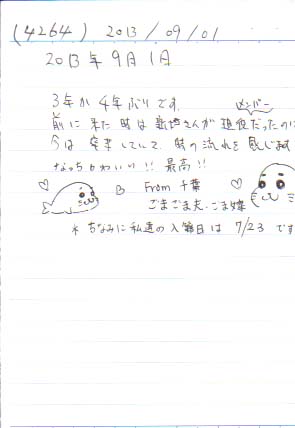 (4264) 2013/09/01
2013年9月1日
3年か4年ぶりです。
メンバー
前に来た時は新垣さんが現役だったのに
今は卒業していて、時の流れを感じます
なっちかわいい!!最高!!
From 千葉
ごまごま夫・ごま嫁
* ちなみに私達の入籍日は 7/23 です